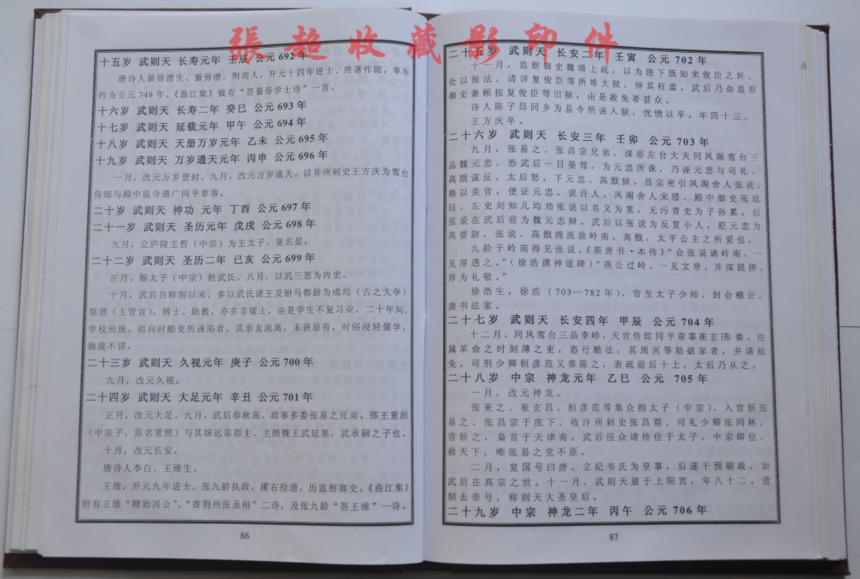 張超收藏影印件
十五岁 武则天 长寿元年 壬辰 公元 692 年
唐诗人綦毋潜生。綦毋潜，荆南人，开元十四年进士，终著作郎，卒年
约为公元 749 年。《曲江集》载有“答綦毋学士诗”一首。
十六岁 武则天 长寿二年 癸巳 公元 693 年
十七岁 武则天 延载元年 甲午 公元 694 年
十八岁 武则天 天册万岁元年 乙未 公元 695 年
十九岁 武则天 万岁通天元年 丙申 公元 696 年
一月，改元万岁登封，九月，改元万岁通天。以并州刺史王方庆为鸾台
侍郎与殿中监寺道广同平章事。
二十岁 武则天 神功 元年 丁酉 公元 697 年
二十一岁 武则天 圣历元年 戊戌 公元 698 年
九月，立庐陵王哲（中宗）为王太子，复名显。
二十二岁 武则天 圣历二年 己亥 公元 699 年
正月，赐太子（中宗）姓武氏，八月，以武三思为内史。
十月，武后自称制以来，多以武氏诸王及驸马都尉为成均（古之大学）
祭酒（主管官），博士、助教，亦多非儒士，由是学生不复习业，二十年间，
学校殆废。而向时酷吏所诬陷者，其亲友流离，未获原宥，时俗浸轻儒学，
驰废不讲。
二十三岁 武则天 久视元年 庚子 公元 700 年
九月，改元久视。
二十四岁 武则天 大足元年 辛丑 公元 701 年
正月，改元大足。九月，武后春秋高，政事多委张易之兄弟，邵王重润
（中宗子，原名重照）与其妹远泰郡主、主婿魏王武延基，武承嗣之子也。
十月，改元长安。
唐诗人李白、王维生。
王维，开元九年进士，张九龄执政，擢右拾遗，历监察御史。《曲江集》
附有王维“赠始兴公”，“寄荆州张丞相”二诗，及张九龄“答王维”一诗。
86
二十五岁 武则天 长安二年 壬寅 公元 702 年
十一月，监察御史魏靖上疏，以为陛下既知来俊臣之奸，
处以极法，请详复俊臣等所堆大狱，伸其枉滥。武后乃命监察
御史苏颋按复俊臣等旧狱，由是赦免者甚众。
诗人陈子昂回乡为县令所诬入狱，忧愤以卒。年四十三。
王方庆卒。
二十六岁 武则天 长安三年 壬卯 公元 703 年
九月，张易之、张昌宗兄弟，深恶左台大夫同凤阁鸾台三
品魏元忠，恐武后一日晏驾，为元忠所诛，乃诬元忠与司礼
高戬谋反，太后怒，下元忠、高戬狱。昌宗密引凤阁舍人张说，
赂以美官，使证元忠。说许人，凤阁舍人宋璟、殿中御史张廷
珪、左史刘知几均劝张说以名义为重，无污青史为子孙累。后
张说在武后前为魏元忠辩。武后以张说为反复小人，贬元忠为
高要尉，张说、高戬绵流放岭南。高戬，太平公主之所爱也。
九龄于岭南得见张说。《新唐书·本传》“会张说谪岭南，一
见厚遇之。”（徐浩撰神道碑）“燕公过岭，一见文章，并深提拂，
厚为礼敬。”
徐浩生，徐浩（703—782 年），官至太子少师，封会稽公。
唐书法家。
二十七岁 武则天 长安四年 甲辰 公元 704 年
十二月，同凤鸾台三品李峤，天官侍郎同平章事崔玄㬢奏，往
属革命之时刻薄之吏，恣行酷法，其周兴等勋破家者，并请赦
免。司刑少卿桓彦范又奏陈之，表疏前后十上，太后乃从之。
二十八岁 中宗 神龙元年 乙巳 公元 705 年
一月，改元神龙。
张柬之、崔玄昌、桓彦范等集众拥太子（中宗），入宫斩张
易之、张昌宗于庆下，收汴州刺史张昌期、司礼少卿张同林，
皆斩之，枭首于天津南。武后应众请传位于太子，中宗即位，
赦天下，唯张易之党不原。
二月，复国号曰唐。立妃韦氏为皇事，后遂干预朝政，如
武后在高宗之世。十一月，武则天崩于上阳宫，年八十二。遗
制去帝号，称则天大圣皇后。
二十九岁 中宗 神龙二年 丙午 公元 706 年
87